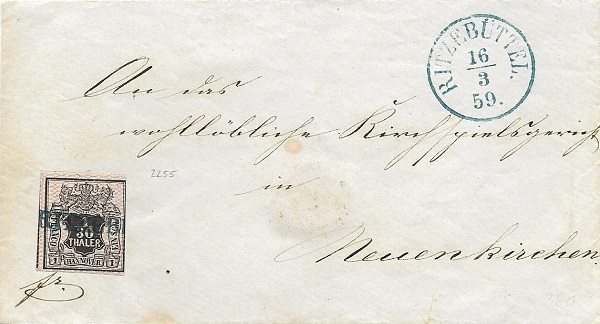 RITZEBÜTTEL.
16
3
59.
An das
wohllöbliche Kirchspielsgericht
in
Neuenkirchen.
2255
1
30
THALER
HANNOVER
1 1
fr.